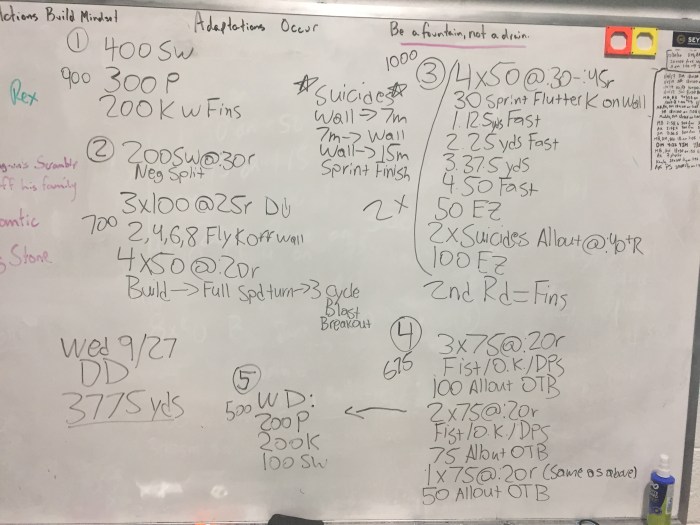 ctions Build Mindset
Adaptations Occur
Be a fountain, not a drain.
Rex
Stone
① 400 SW
900 300 P
200 K w Fins
② 200 SW @ :30r
Neg Split
3x100 @ 25r DU
700 2,4,6,8 Fly K off wall
4x50 @ :20r
Build → Full Spd turn → 3 cycle
Blast
Breakout
☆ Suicides ☆
Wall → 7m
7m → Wall
Wall → 15m
Sprint Finish
1000
③ 4x50 @ :30-:45r
30 Sprint Flutter K on Wall
1. 12.5 yds Fast
2. 25 yds Fast
3. 37.5 yds
4. 50 Fast
2x 50 EZ
2x Suicides Allout @ :40+R
100 EZ
2nd Rd = Fins
④ 3x75 @ :20r
675 Fist/O.K./DPS
100 Allout OTB
2x75 @ :20r
Fist/O.K./DPS
75 Allout OTB
1x75 @ :20r (Same as above)
50 Allout OTB
⑤
500 WD:
200 P
200 K
100 SW
Wed 9/27
DD
3775 yds